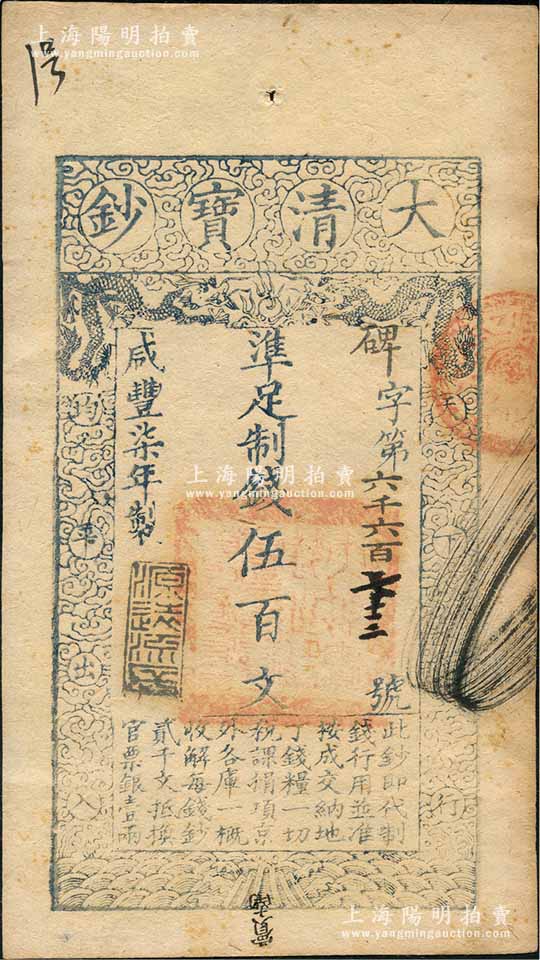 上海陽明拍賣
www.yangmingauction.com
大清寶鈔
碑字第六千六百
號
準足制錢伍百文
咸豐柒年製
天下
行
均平出入
此鈔即代制
錢行用並准
按成交納地
丁錢糧一切
稅課捐項京
外各庫一概
收解每錢鈔
貳千文抵換
官票銀壹兩
源遠流長
上海陽明拍賣
www.yangmingauction.com
上海陽明拍賣
www.yangmingauction.com